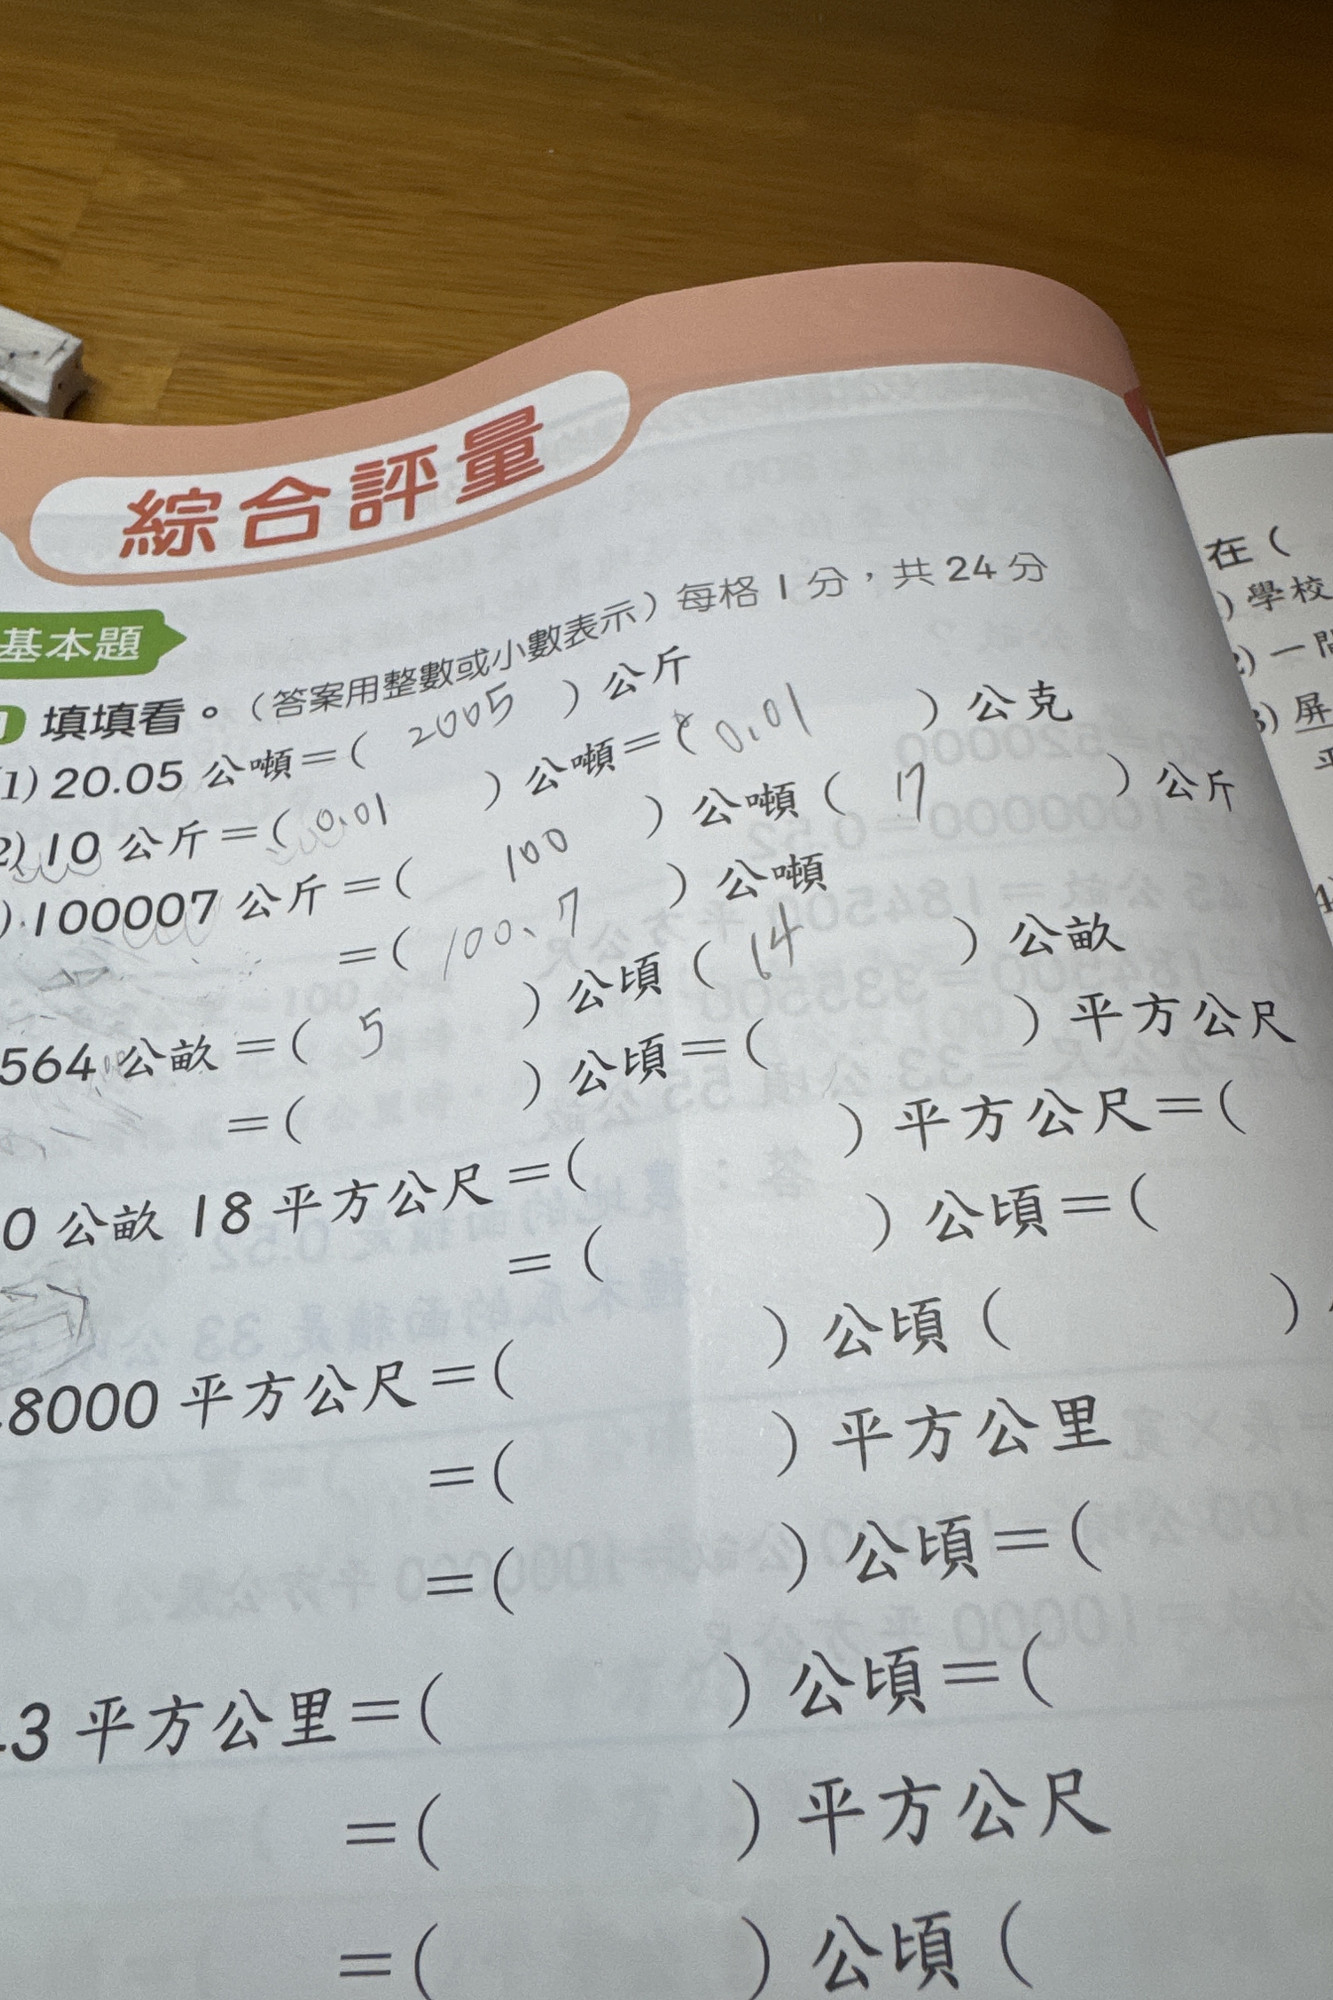 綜合評量
基本題
填填看。（答案用整數或小數表示）每格1分，共24分
(1) 20.05 公噸＝（ 2005 ）公斤
2) 10 公斤＝（ 0.01 ）公噸＝（ 0.01 ）公克
) 100007 公斤＝（ 100 ）公噸（ 17 ）公斤
＝（ 100.7 ）公噸
564 公畝＝（ 5 ）公頃（ 14 ）公畝
＝（ ）公頃＝（ ）平方公尺
0 公畝 18 平方公尺＝（ ）平方公尺＝（
＝（ ）公頃＝（
8000 平方公尺＝（ ）公頃（ ）
＝（ ）平方公里
＝（ ）公頃＝（
.3 平方公里＝（ ）公頃＝（
＝（ ）平方公尺
＝（ ）公頃（
在（
) 學校
2) 一
3) 屏